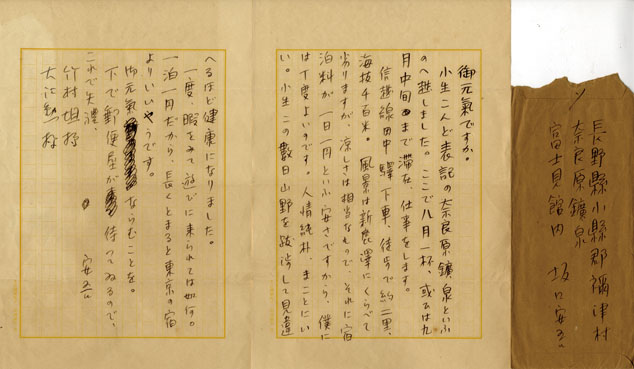 御元氣ですか。
小生こんど表記の奈良原鑛泉といふ
のへ越しました。ここで八月一杯、或ひは九
月中旬まで滯在、仕事をします。
信越線田中驛下車、徒歩で約二里、
海抜千百米。風景は新鹿澤にくらべて
劣りますが、涼しさは相当なもので、それに宿
泊料が一日一円といふ安さですから、僕に
は丁度よいのです。人情純朴、まことにい
い。小生この数日山野を跋渉して見違
へるほど健康になりました。
一度、暇をみて遊びに来られては如何。
一泊一円だから、長くとまると東京の宿
よりいいやうです。
御元氣ならむことを。
下で郵便屋が待ってゐるので、
これで失禮、
安吾
大江勲様
長野縣小縣郡禰津村
奈良原鑛泉
富士見館内 坂口安吾